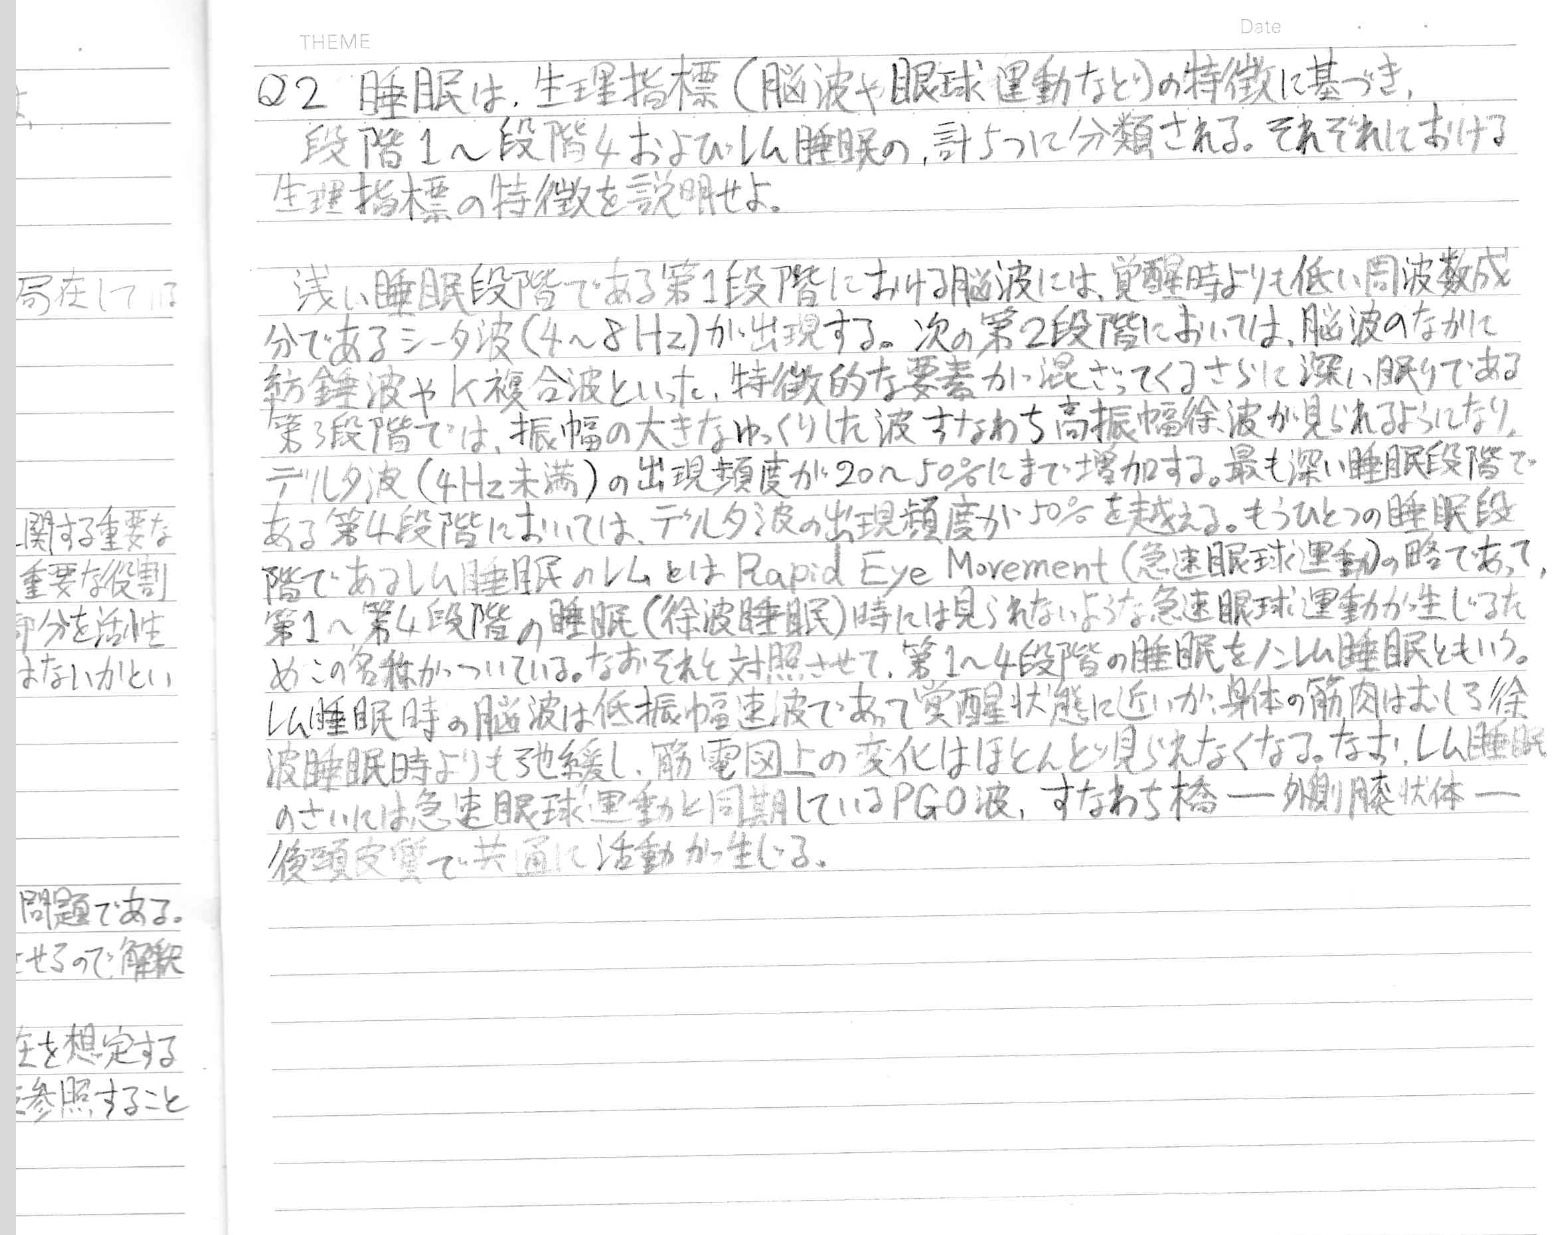 は、
局在しては
関する重要な
重要な役割
部分を活性
はないかとい
問題である。
させるので、解釈
在を想定する
参照すること
THEME
Date
Q2 睡眠は、生理指標(脳波や眼球運動など)の特徴に基づき、
段階1〜段階4およびレム睡眠の、計5つに分類される。それぞれにおける
生理指標の特徴を説明せよ。
浅い睡眠段階である第1段階における脳波には、覚醒時よりも低い周波数成
分であるシータ波(4〜8Hz)が出現する。次の第2段階においては、脳波のなかに
紡錘波やK複合波といった、特徴的な要素が混ざってくるさらに深い眠りである
第3段階では、振幅の大きなゆっくりした波すなわち高振幅徐波が見られるようになり、
デルタ波(4Hz未満)の出現頻度が20〜50%にまで増加する。最も深い睡眠段階で
ある第4段階においては、デルタ波の出現頻度が50%を越える。もうひとつの睡眠段
階であるレム睡眠のレムとはRapid Eye Movement(急速眼球運動)の略であって、
第1〜第4段階の睡眠(徐波睡眠)時には見られないような急速眼球運動が生じるた
めこの名称がついている。なおそれと対照させて、第1〜4段階の睡眠をノンレム睡眠ともいう。
レム睡眠時の脳波は低振幅速波であって覚醒状態に近いが、身体の筋肉はむしろ徐
波睡眠時よりも弛緩し、筋電図上の変化はほとんど見られなくなる。なお、レム睡眠
のさいには急速眼球運動と同期しているPGO波、すなわち橋―外側膝状体―
後頭皮質で共通に活動が生じる。